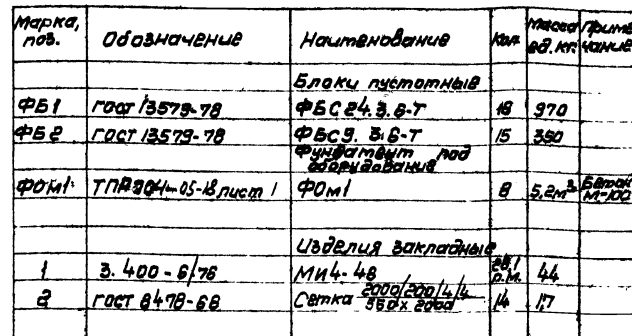 Марка, поз. Обозначение Наименование Кол. Масса ед. кг Примечание
Блоки пустотные
ФБ1 ГОСТ 13579-78 ФБС24.3.6-Т 18 970
ФБ2 ГОСТ 13579-78 ФБС9.3.6-Т 15 350
Фундамент под оборудование
ФОМ1 лист 1 ФОМ1 8 5,2м³ Бетон М-100
Изделия закладные
1 3.400-6/76 МИ4-48 п.м. 44
2 ГОСТ 8478-68 Сетка 2000/200/4/4 14 17